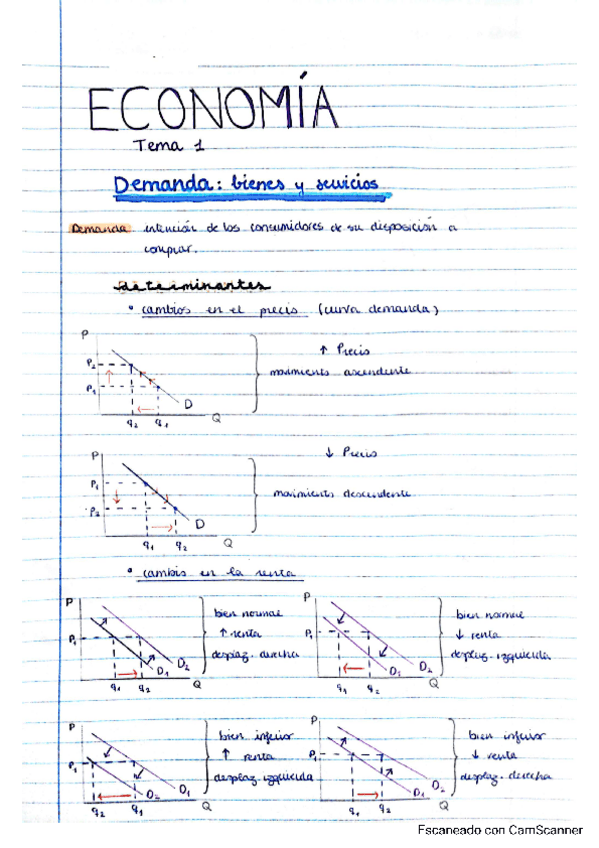 ECONOMÍA
Tema 1
Demanda: bienes y servicios
Demanda intención de los consumidores de su disposición a
comprar.
determinantes
• cambios en el precio (curva demanda)
P
P2
P1
D
q2 q1 Q
↑ Precio
movimiento ascendente
P
P1
P2
D
q1 q2 Q
↓ Precio
movimiento descendente
• cambis en la renta
P
P1
D1 D2
q1 q2 Q
bien normal
↑ renta
desplaz. derecha
P
P1
D1 D2
q1 q2 Q
bien normal
↓ renta
desplaz. izquierda
P
P1
D2 D1
q2 q1 Q
bien inferior
↑ renta
desplaz. izquierda
P
P1
D1 D2
q1 q2 Q
bien inferior
↓ renta
desplaz. derecha
Escaneado con CamScanner